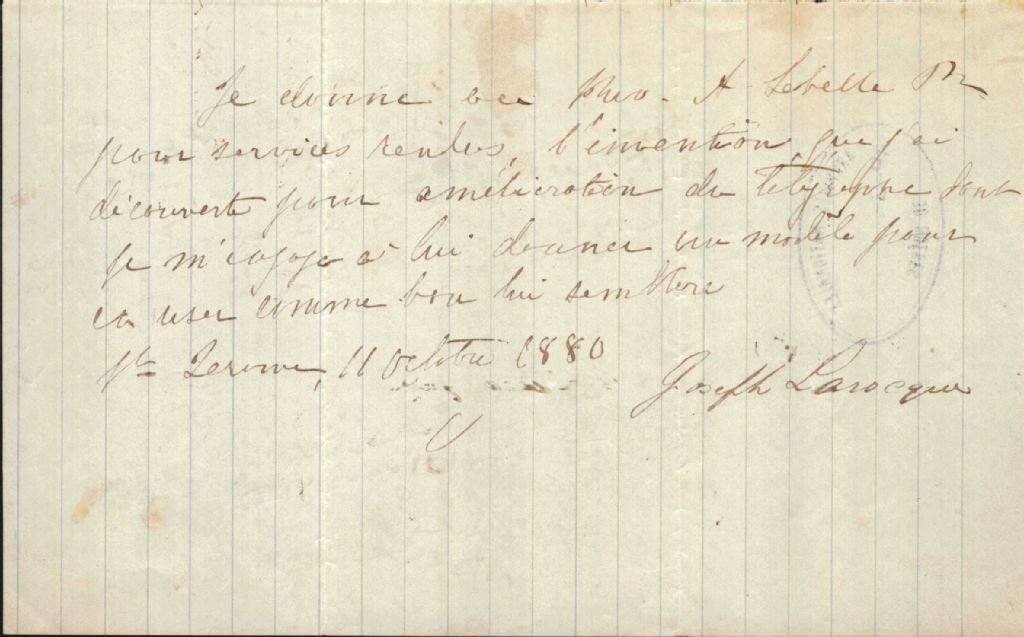 Je donne au Revd. A Labelle Ptr
pour services rendus, l'invention que j'ai
découverte pour amélioration du télégraphe dont
je m'engage à lui donner un modèle pour
en user comme bon lui semblera
St Jerome, 11 Octobre 1880
Joseph Larocque